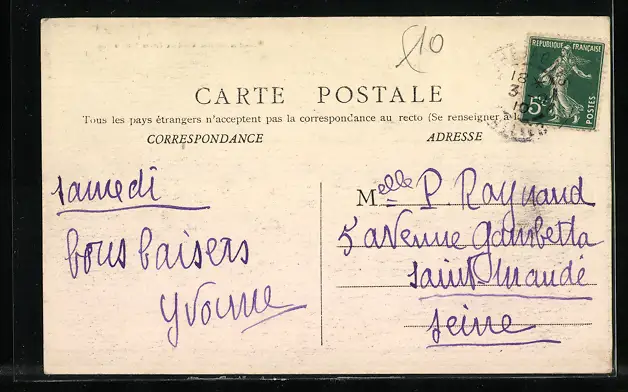 10
REPUBLIQUE FRANÇAISE
5c
POSTES
18
3
CARTE POSTALE
Tous les pays étrangers n'acceptent pas la correspondance au recto (Se renseigner à la
CORRESPONDANCE
ADRESSE
Samedi
bons baisers
Yvonne
Melle P. Raynaud
5 avenue Gambetta
Saint-Mandé
Seine